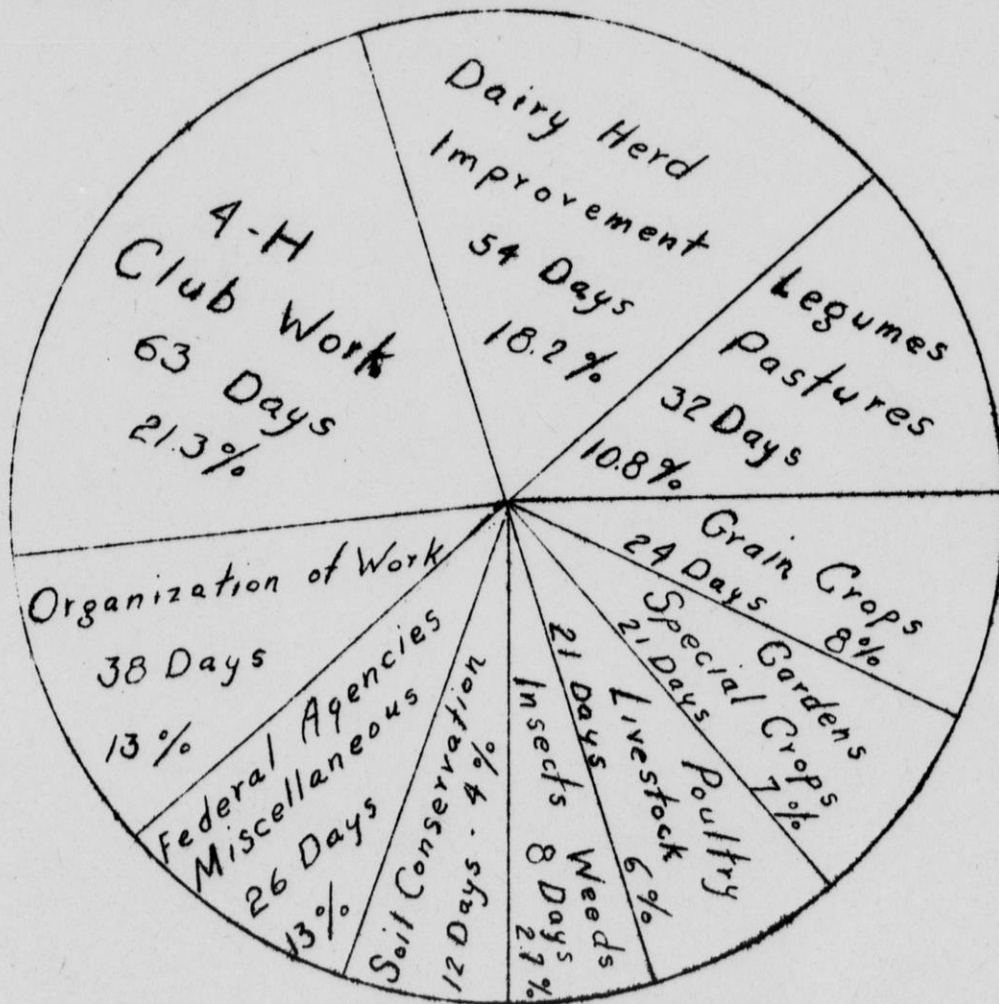 Dairy Herd
Improvement
54 Days
18.2%
Legumes
Pastures
32 Days
10.8%
Grain Crops
24 Days 8%
Gardens
Special Crops
21 Days 7%
Poultry
Livestock
21 Days 6%
Weeds
Insects 8 Days
2.7%
Soil Conservation
12 Days - 4%
Federal Agencies
Miscellaneous
26 Days
13%
Organization of Work
38 Days
13%
4-H
Club Work
63 Days
21.3%